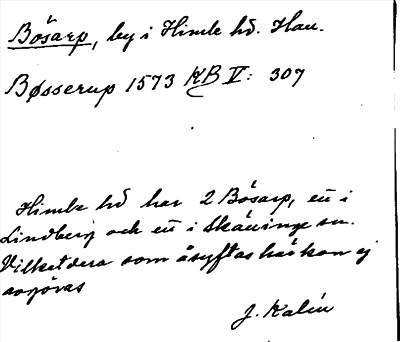 Bösarp, by i Himle hd. Hall.
Bøsserup 1573 KB V: 307
Himle hd har 2 Bösarp, en i
Lindberg och en i Skällinge sn.
Vilketdera som åsyftas här kan ej
avgöras
J. Kalén